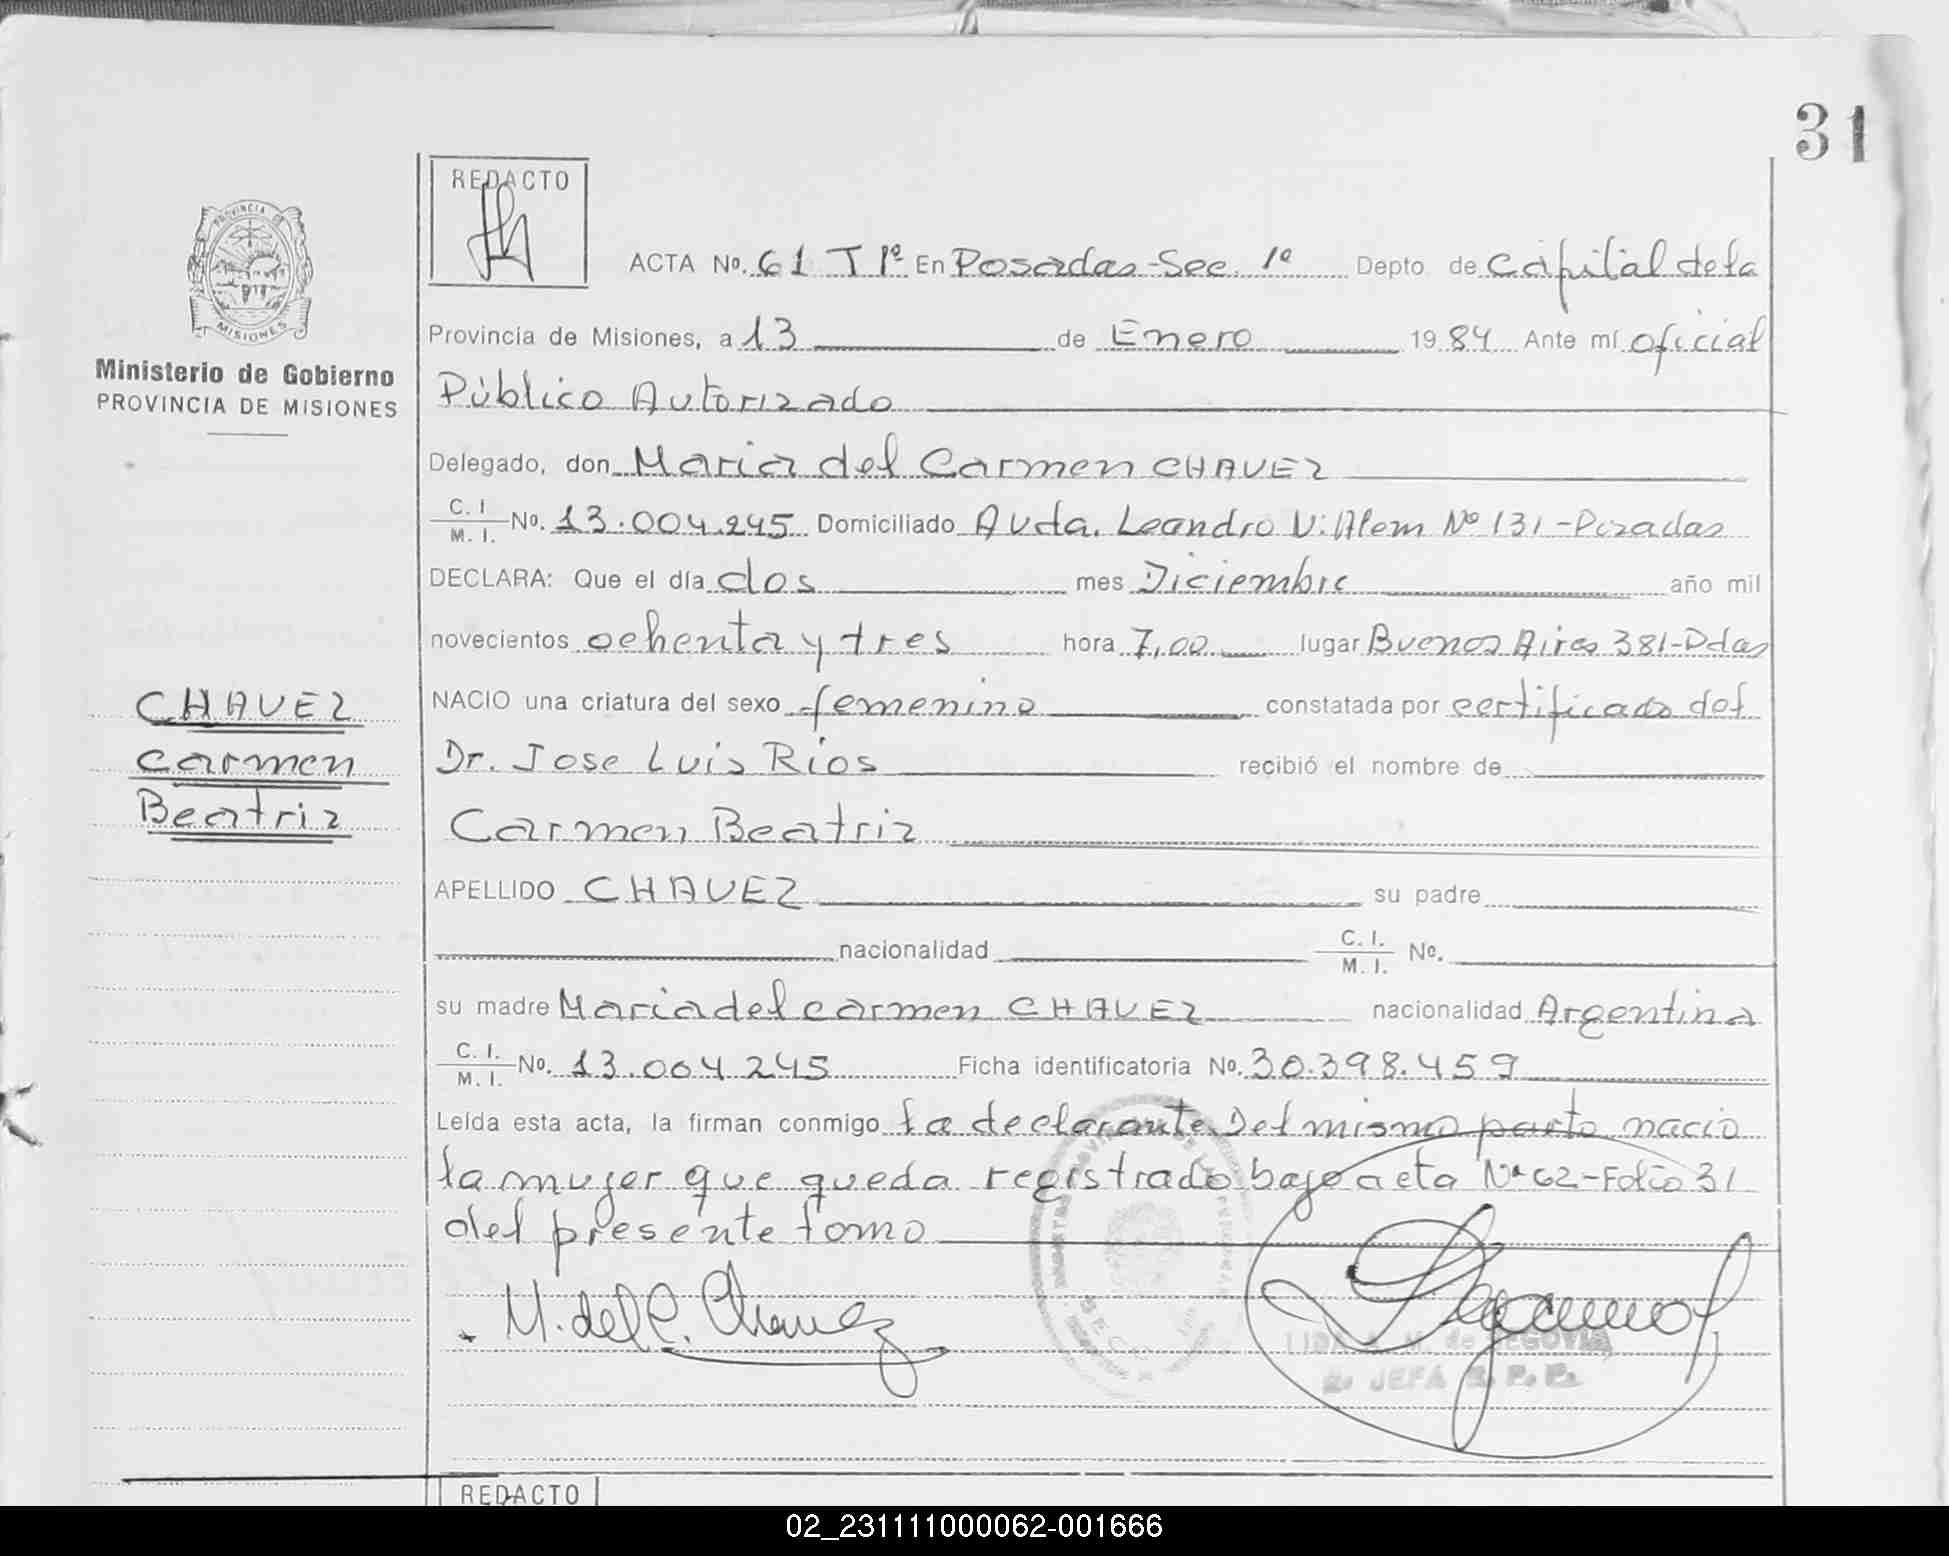 31
REDACTO
PROVINCIA DE
MISIONES
Ministerio de Gobierno
PROVINCIA DE MISIONES
ACTA Nº. 61 T 1º En Posadas-Sec. 1º Depto de Capital de la
Provincia de Misiones, a 13 de Enero 1984 Ante mí oficial
Público Autorizado
Delegado, don Maria del Carmen CHAVEZ
C. I. / M. I. Nº. 13.004.245 Domiciliado Avda. Leandro V. Alem Nº 131-Posadas
DECLARA: Que el día dos mes Diciembre año mil
novecientos ochenta y tres hora 7,00 lugar Buenos Aires 381-Pdas
NACIO una criatura del sexo femenino constatada por certificado del
Dr. Jose Luis Rios recibió el nombre de
Carmen Beatriz
APELLIDO CHAVEZ su padre
nacionalidad C. I. / M. I. Nº.
su madre Maria del carmen CHAVEZ nacionalidad Argentina
C. I. / M. I. Nº. 13.004 245 Ficha identificatoria Nº. 30.398.459
Leída esta acta, la firman conmigo la declarante. Del mismo parto nacio
la mujer que queda registrado bajo acta Nº 62-Folio 31
del presente tomo
CHAVEZ
Carmen
Beatriz
M. del C. Chavez
M. de SEGOVIA
JEFA R. P. P.
REDACTO
02_231111000062-001666